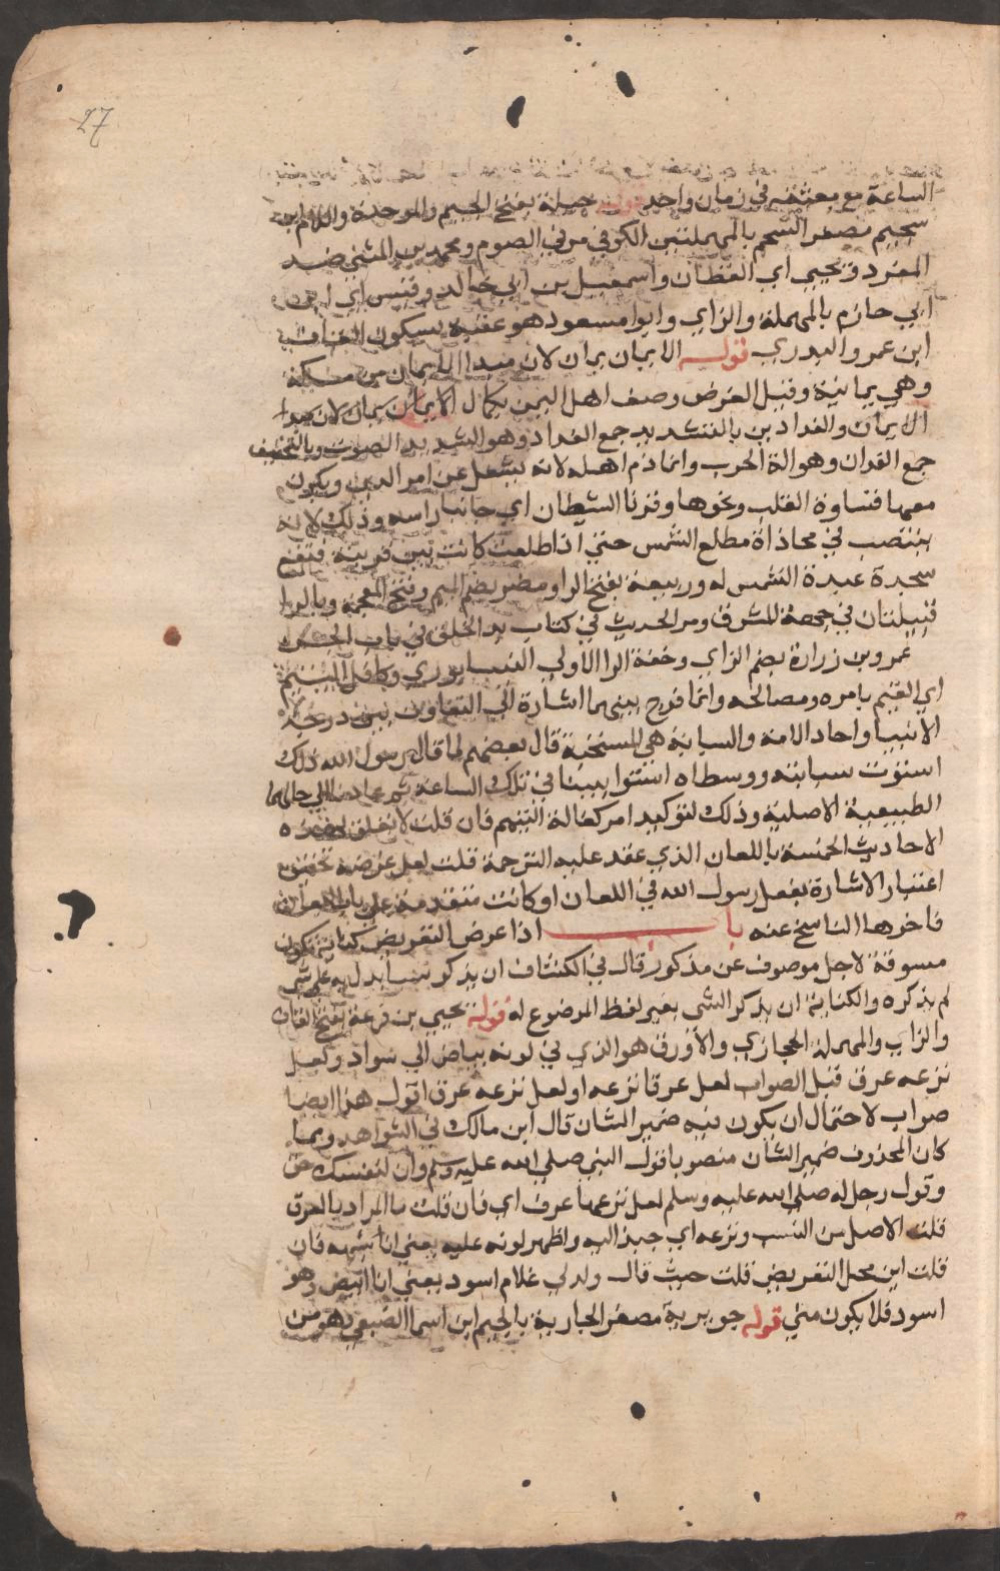 27
الساعة مع بعثته في زمان واحد قوله جبلة بفتح الجيم والموحدة واللام ابن
سحيم مصغر السحم بالمهملتين الكوفي مر في الصوم ومحمد بن المثنى ضد
المفرد ويحيي اي القطان واسمعيل بن ابي خالد وقيس اي ابن
ابي حازم بالمهملة والزاي وابوا مسعود هو عقبة بسكون القاف
ابن عمر والبدري قوله الايمان يمان لان مبدا الايمان من مكة
وهي يمانية وقيل الغرض وصف اهل اليمن بكمال الايمان
الايمان والفدادين بالتشديد جمع الفداد وهو الشديد الصوت وبالتخفيف
جمع الفدان وهو الة الحرب وانما ذم اهله لانه يشغل عن امر الدين ويكون
معها قساوة القلب ونحوها وقرنا الشيطان اي جانبا راسه وذلك لانه
ينتصب في محاذاة مطلع الشمس حتي اذا طلعت كانت بين قرنيه فتقع
سجدة عبدة الشمس له وربيعة بفتح الرا ومضر بضم الميم وفتح المعجمة وبالرا
قبيلتان في جهة المشرق ومر الحديث في كتاب بدا الخلق في باب الجن
عمرو بن زرارة بضم الزاي وخفة الرا الاولي النيسابوري وكافل اليتيم
اي القيم بامره ومصالحه وانما فرج بينهما اشارة الي التفاوت بين درجة
الانبيا واحاد الامة والسبابة هي المسبحة قال بعضهم لما قال رسول الله ذلك
استوت سبابته ووسطاه استوا بينا في تلك الساعة ثم عادتا الي حالهما
الطبيعية الاصلية وذلك لتوكيد امر كفالة اليتيم فان قلت لا تعلق لهذه
الاحاديث الخمسة باللعان الذي عقد عليه الترجمة قلت لعل غرضه تحقيق
اعتبار الاشارة بفعل رسول الله في اللعان او كانت متقدمة علي باب اللعان
فاخرها الناسخ عنه باب اذا عرض التعريض كناية تكون
مسوقة لاجل موصوف غير مذكور قال في الكشاف ان يذكر شيا يدل به علي شي
لم يذكره والكناية ان يذكر الشي بغير لفظ الموضوع له قوله يحيي بن قزعة بفتح القاف
والزاي والمهملة الحجازي والأورق هو الذي في لونه بياض الي سواد ولعل
نزعه عرق قيل الصواب لعل عرقا نزعه او لعل نزعه عرق اقول هذا ايضا
صواب لاحتمال ان يكون فيه ضمير الشان قال ابن مالك في الشواهد ومما
كان المحذوف ضمير الشان منصوبا قول النبي صلي الله عليه وسلم وان لنفسك حق
وقول رجل له صلي الله عليه وسلم لعل نزعها عرق اي فان قلت ما المراد بالعرق
قلت الاصل من النسب ونزعه اي جبذ اليه واظهر لونه عليه يعني انه اشبهه فان
قلت اين محل التعريض قلت حيث قال ولد لي غلام اسود يعني انا ابيض وهو
اسود فلا يكون مني قوله جويرية مصغر الجارية بالجيم ابن اسما الضبعي وهو من